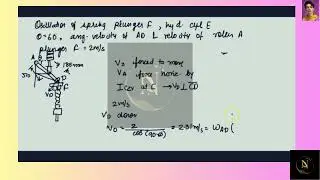 Oscillator of spring plunger F, hyd cyl E
θ=60, ang. velocity of AD & velocity of roller A
plunger F = 2m/s
VB forced to move
VA force move by
I CEV at C → VD ⊥ CD
2m/s
VD down
VD = 2 / cos(90-θ) = 2.31m/s = WAD (
A
D
VD
N
N